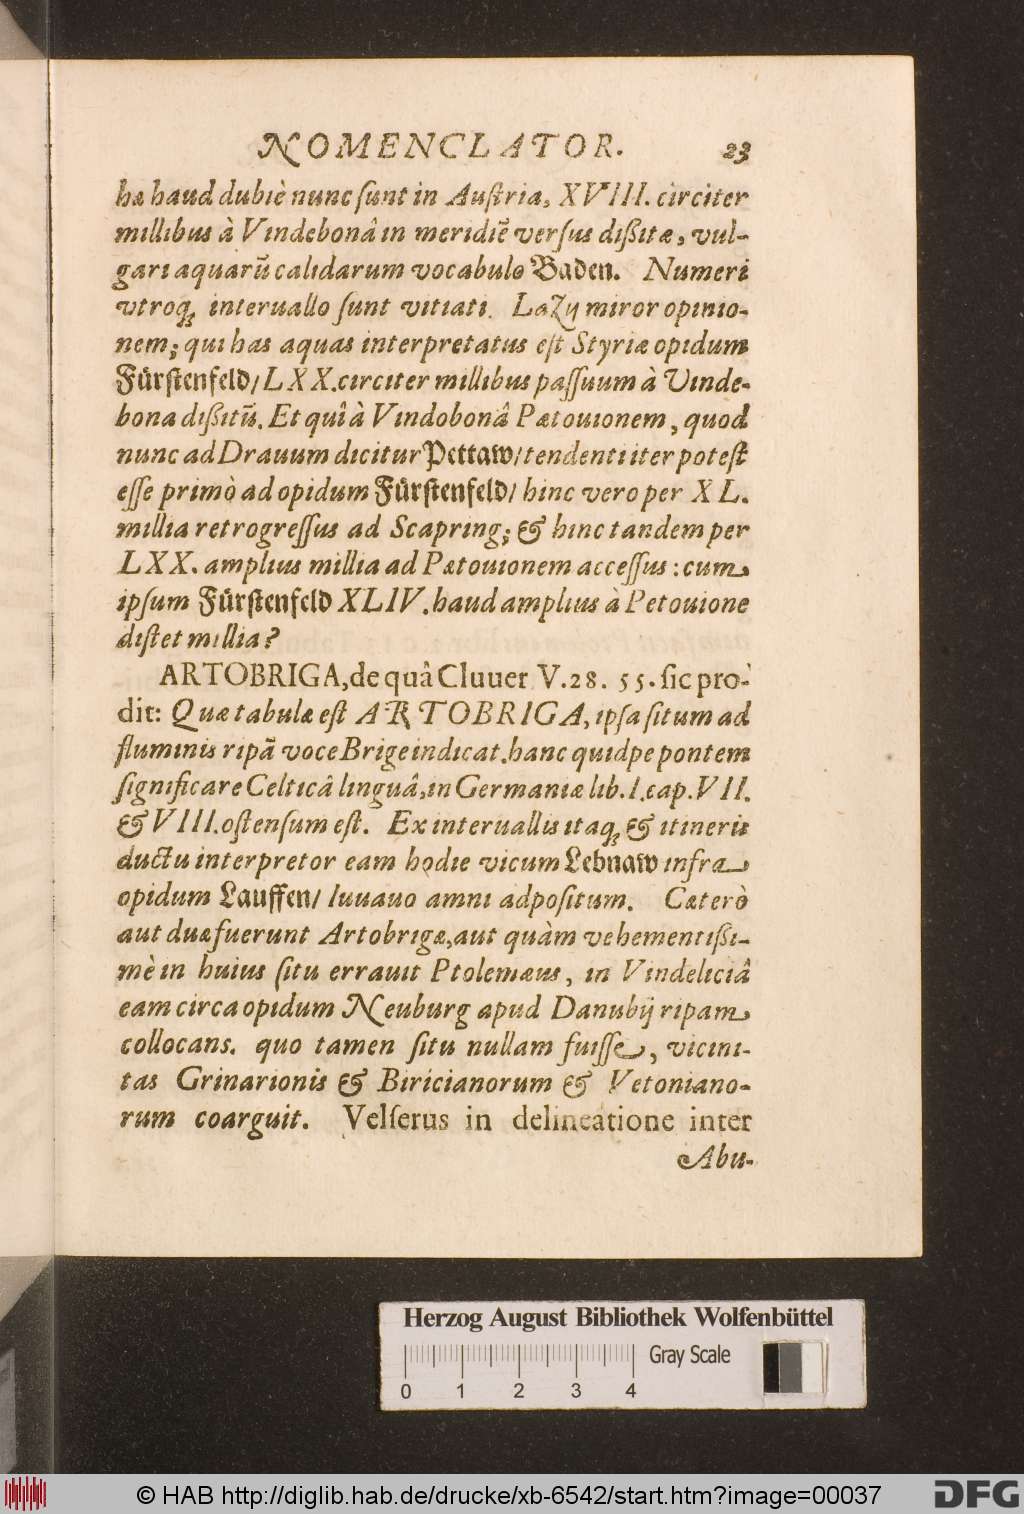 NOMENCLATOR. 23
hæ haud dubiè nunc ſunt in Auſtria, XVIII. circiter
millibus à Vindebonâ in meridiẽ verſus dißitæ, vul-
gari aquarũ calidarum vocabulo Baden. Numeri
vtroq; interuallo ſunt vitiati. Lazij miror opinio-
nem; qui has aquas interpretatus eſt Styriæ opidum
Fürſtenfeld/ LXX. circiter millibus paſſuum à Vinde-
bona dißitũ. Et quî à Vindobonâ Pætouionem, quod
nunc ad Drauum dicitur Pettaw/ tendenti iter poteſt
eſſe primò ad opidum Fürſtenfeld/ hinc vero per XL.
millia retrogreſſus ad Scapring; & hinc tandem per
LXX. amplius millia ad Pætouionem acceſſus: cum
ipſum Fürſtenfeld XLIV. haud amplius à Petouione
diſtet millia?
ARTOBRIGA, de quâ Cluuer V. 28. 55. ſic pro-
dit: Quæ tabulæ eſt ARTOBRIGA, ipſa ſitum ad
fluminis ripã voce Brige indicat. hanc quidpe pontem
ſignificare Celticâ linguâ, in Germaniæ lib. I. cap. VII.
& VIII. oſtenſum eſt. Ex interuallis itaq; & itineris
ductu interpretor eam hodie vicum Lebnaw infra
opidum Lauffen/ Iuuauo amni adpoſitum. Cæterò
aut duæ fuerunt Artobrigæ, aut quàm vehementißi-
mè in huius ſitu errauit Ptolemæus, in Vindeliciâ
eam circa opidum Neuburg apud Danubij ripam
collocans. quo tamen ſitu nullam fuiſſe, vicini-
tas Grinarionis & Biricianorum & Vetoniano-
rum coarguit. Velſerus in delineatione inter
Abu-
Herzog August Bibliothek Wolfenbüttel
Gray Scale
0 1 2 3 4
© HAB http://diglib.hab.de/drucke/xb-6542/start.htm?image=00037
DFG